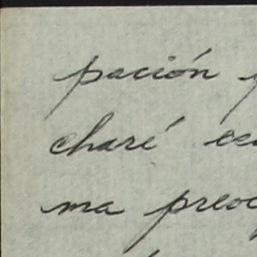 pación
charé
ma preoc